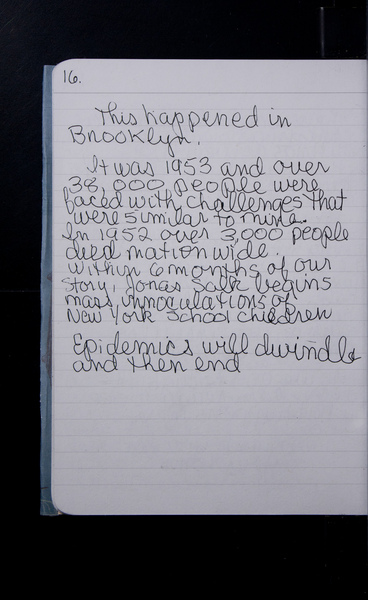 16.
This happened in
Brooklyn.
It was 1953 and over
38,000 people were
faced with challenges that
were similar to mine.
In 1952 over 3,000 people
died nationwide.
Within 6 months of our
story, Jonas Salk begins
mass innoculations of
New York School children
Epidemics will dwindle
and then end